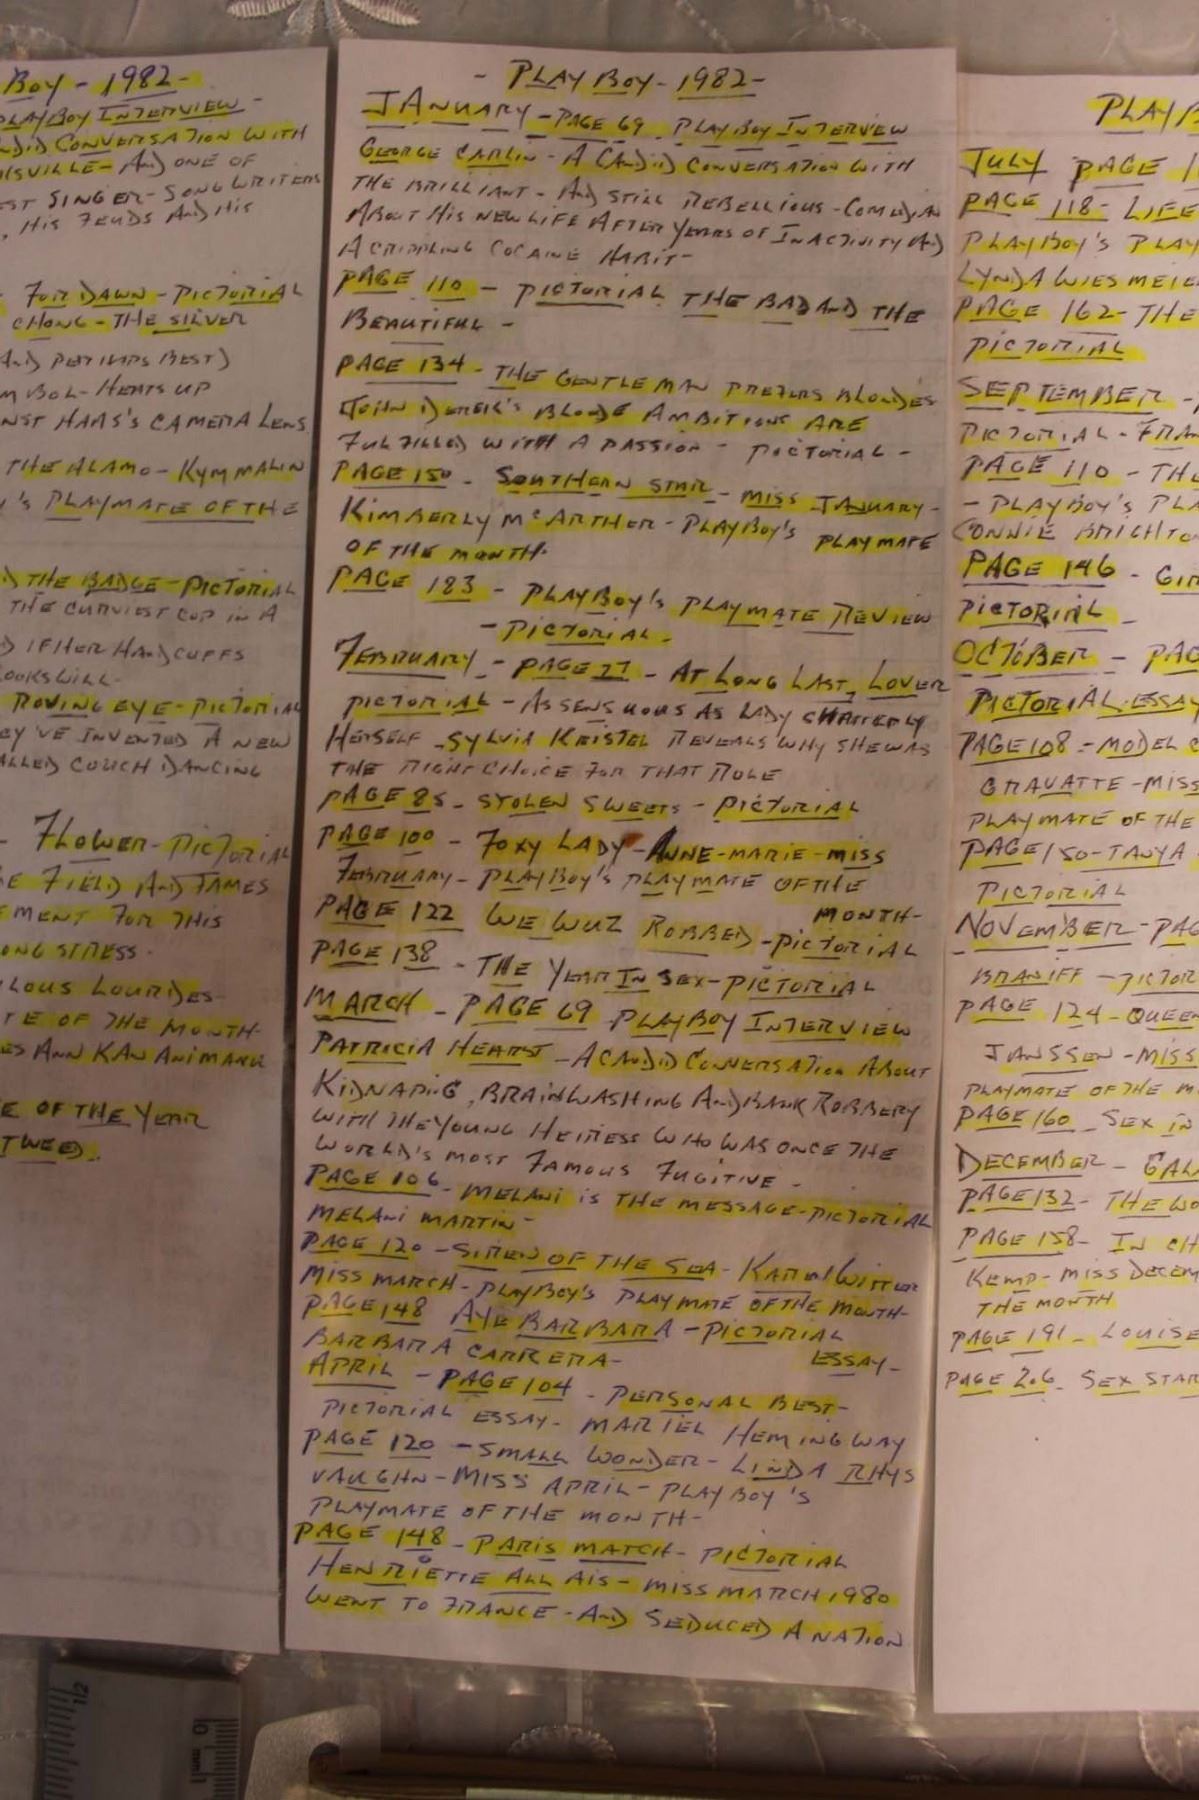 BOY - 1982 -
PLAYBOY INTERVIEW -
CANDID CONVERSATION WITH
AND ONE OF
SINGER - SONGWRITERS
, HIS FEUDS AND HIS
FOR DAWN - PICTORIAL
CHONG - THE SILVER
AND PERHAPS BEST)
HEATS UP
HAAS'S CAMERA LENS
THE ALAMO - KYM MALIN
'S PLAYMATE OF THE
THE BADGE - PICTORIAL
THE CURVIEST COP IN A
IF HER HANDCUFFS
LOOKS WILL -
ROVING EYE - PICTORIAL
EY'VE INVENTED A NEW
ALLED COUCH DANCING
- FLOWER - PICTORIAL
FIELD AND JAMES
MENT FOR THIS
ONG STRESS -
LOUS LOURDES
TE OF THE MONTH
ES ANN KANANIMARU
E OF THE YEAR
TWEED.
- PLAYBOY - 1982 -
JANUARY - PAGE 69 PLAYBOY INTERVIEW
GEORGE CARLIN - A CANDID CONVERSATION WITH
THE BRILLIANT - AND STILL REBELLIOUS - COMEDIAN
ABOUT HIS NEW LIFE AFTER YEARS OF INACTIVITY AND
A CRIPPLING COCAINE HABIT -
PAGE 110 - PICTORIAL THE BAD AND THE
BEAUTIFUL -
PAGE 134 - THE GENTLEMAN PREFERS BLONDES
JOHN DEREK'S BLONDE AMBITIONS ARE
FULFILLED WITH A PASSION - PICTORIAL -
PAGE 150 - SOUTHERN STAR - MISS JANUARY -
KIMBERLY McARTHER - PLAYBOY'S PLAYMATE
OF THE MONTH.
PAGE 183 - PLAYBOY'S PLAYMATE REVIEW
- PICTORIAL -
FEBRUARY - PAGE 77 - AT LONG LAST, LOVER
PICTORIAL - AS SENSUOUS AS LADY CHATTERLY
HERSELF - SYLVIA KRISTEL REVEALS WHY SHE WAS
THE RIGHT CHOICE FOR THAT ROLE
PAGE 85 - STOLEN SWEETS - PICTORIAL
PAGE 100 - FOXY LADY - ANNE-MARIE - MISS
FEBRUARY - PLAYBOY'S PLAYMATE OF THE
MONTH -
PAGE 122 WE WUZ ROBBED - PICTORIAL
PAGE 138 - THE YEAR IN SEX - PICTORIAL
MARCH - PAGE 69 PLAYBOY INTERVIEW
PATRICIA HEARST - A CANDID CONVERSATION ABOUT
KIDNAPIG, BRAINWASHING AND BANK ROBBERY
WITH THE YOUNG HEIRESS WHO WAS ONCE THE
WORLD'S MOST FAMOUS FUGITIVE -
PAGE 106 - MELANI IS THE MESSAGE - PICTORIAL
MELANI MARTIN -
PAGE 120 - SIREN OF THE SEA - KAREN WITTER
MISS MARCH - PLAYBOY'S PLAYMATE OF THE MONTH -
PAGE 148 AYE BARBARA - PICTORIAL
BARBARA CARRERA - ESSAY -
APRIL - PAGE 104 - PERSONAL BEST -
PICTORIAL ESSAY - MARIEL HEMINGWAY
PAGE 120 - SMALL WONDER - LINDA RHYS
VAUGHN - MISS APRIL - PLAYBOY'S
PLAYMATE OF THE MONTH -
PAGE 148 - PARIS MATCH - PICTORIAL
HENRIETTE ALLAIS - MISS MARCH 1980
WENT TO FRANCE - AND SEDUCED A NATION
PLAYB
JULY PAGE 1
PAGE 118 - LIFE
PLAYBOY'S PLAY
LYNDA WIESMEIE
PAGE 162 - THE
PICTORIAL
SEPTEMBER -
PICTORIAL - FRAN
PAGE 110 - THE
- PLAYBOY'S PLA
CONNIE BRIGHTO
PAGE 146 - GIR
PICTORIAL -
OCTOBER - PAG
PICTORIAL ESSAY
PAGE 108 - MODEL
GRAVATTE - MISS
PLAYMATE OF THE
PAGE 150 - TANYA
PICTORIAL
NOVEMBER - PAG
BRANIFF - PICTOR
PAGE 124 - QUEEN
JANSSEN - MISS
PLAYMATE OF THE M
PAGE 160 SEX IN
DECEMBER - GALA
PAGE 132 - THE WO
PAGE 158 - IN CH
KEMP - MISS DECEM
THE MONTH
PAGE 191 - LOUISE
PAGE 206 SEX STAR